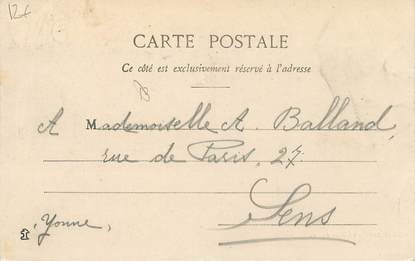 12€
CARTE POSTALE
Ce côté est exclusivement réservé à l'adresse
A Mademoiselle A. Balland,
rue de Paris, 27
Sens
Yonne,